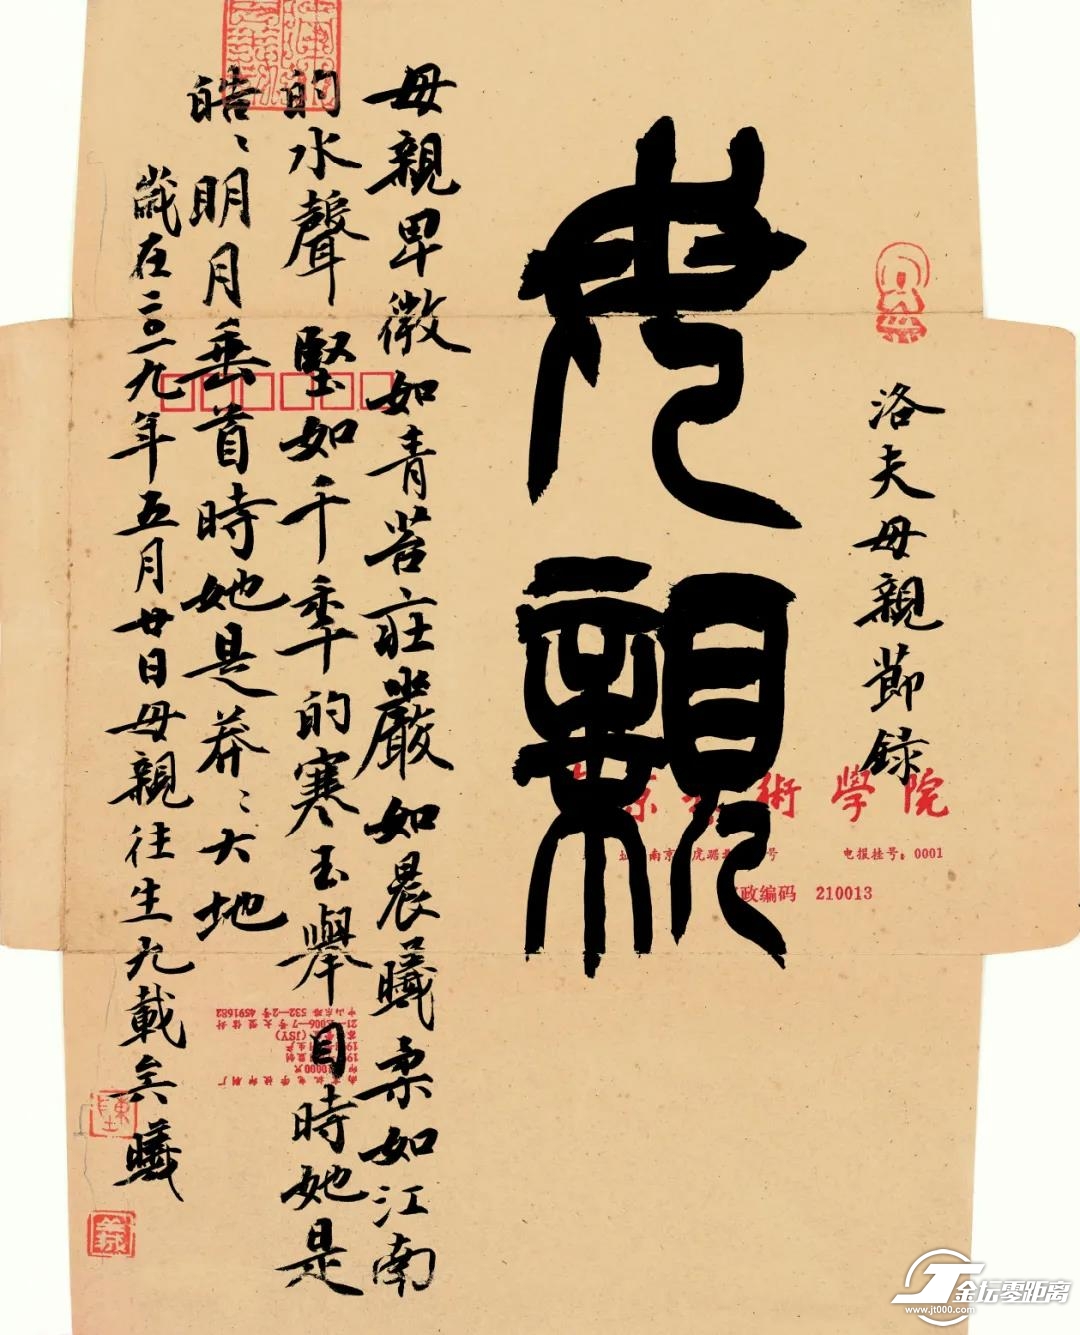 洛夫母親節錄
母親
母親卑微如青苔莊嚴如晨曦柔如江南
的水聲堅如千年的寒玉舉目時她是
皓〻明月垂首時她是莽〻大地
歲在二〇一九年五月廿日母親往生九載矣曦
術學院
电报挂号：0001
政编码 210013
中山东路532—2号4591682
金坛零距离
www.jt000.com